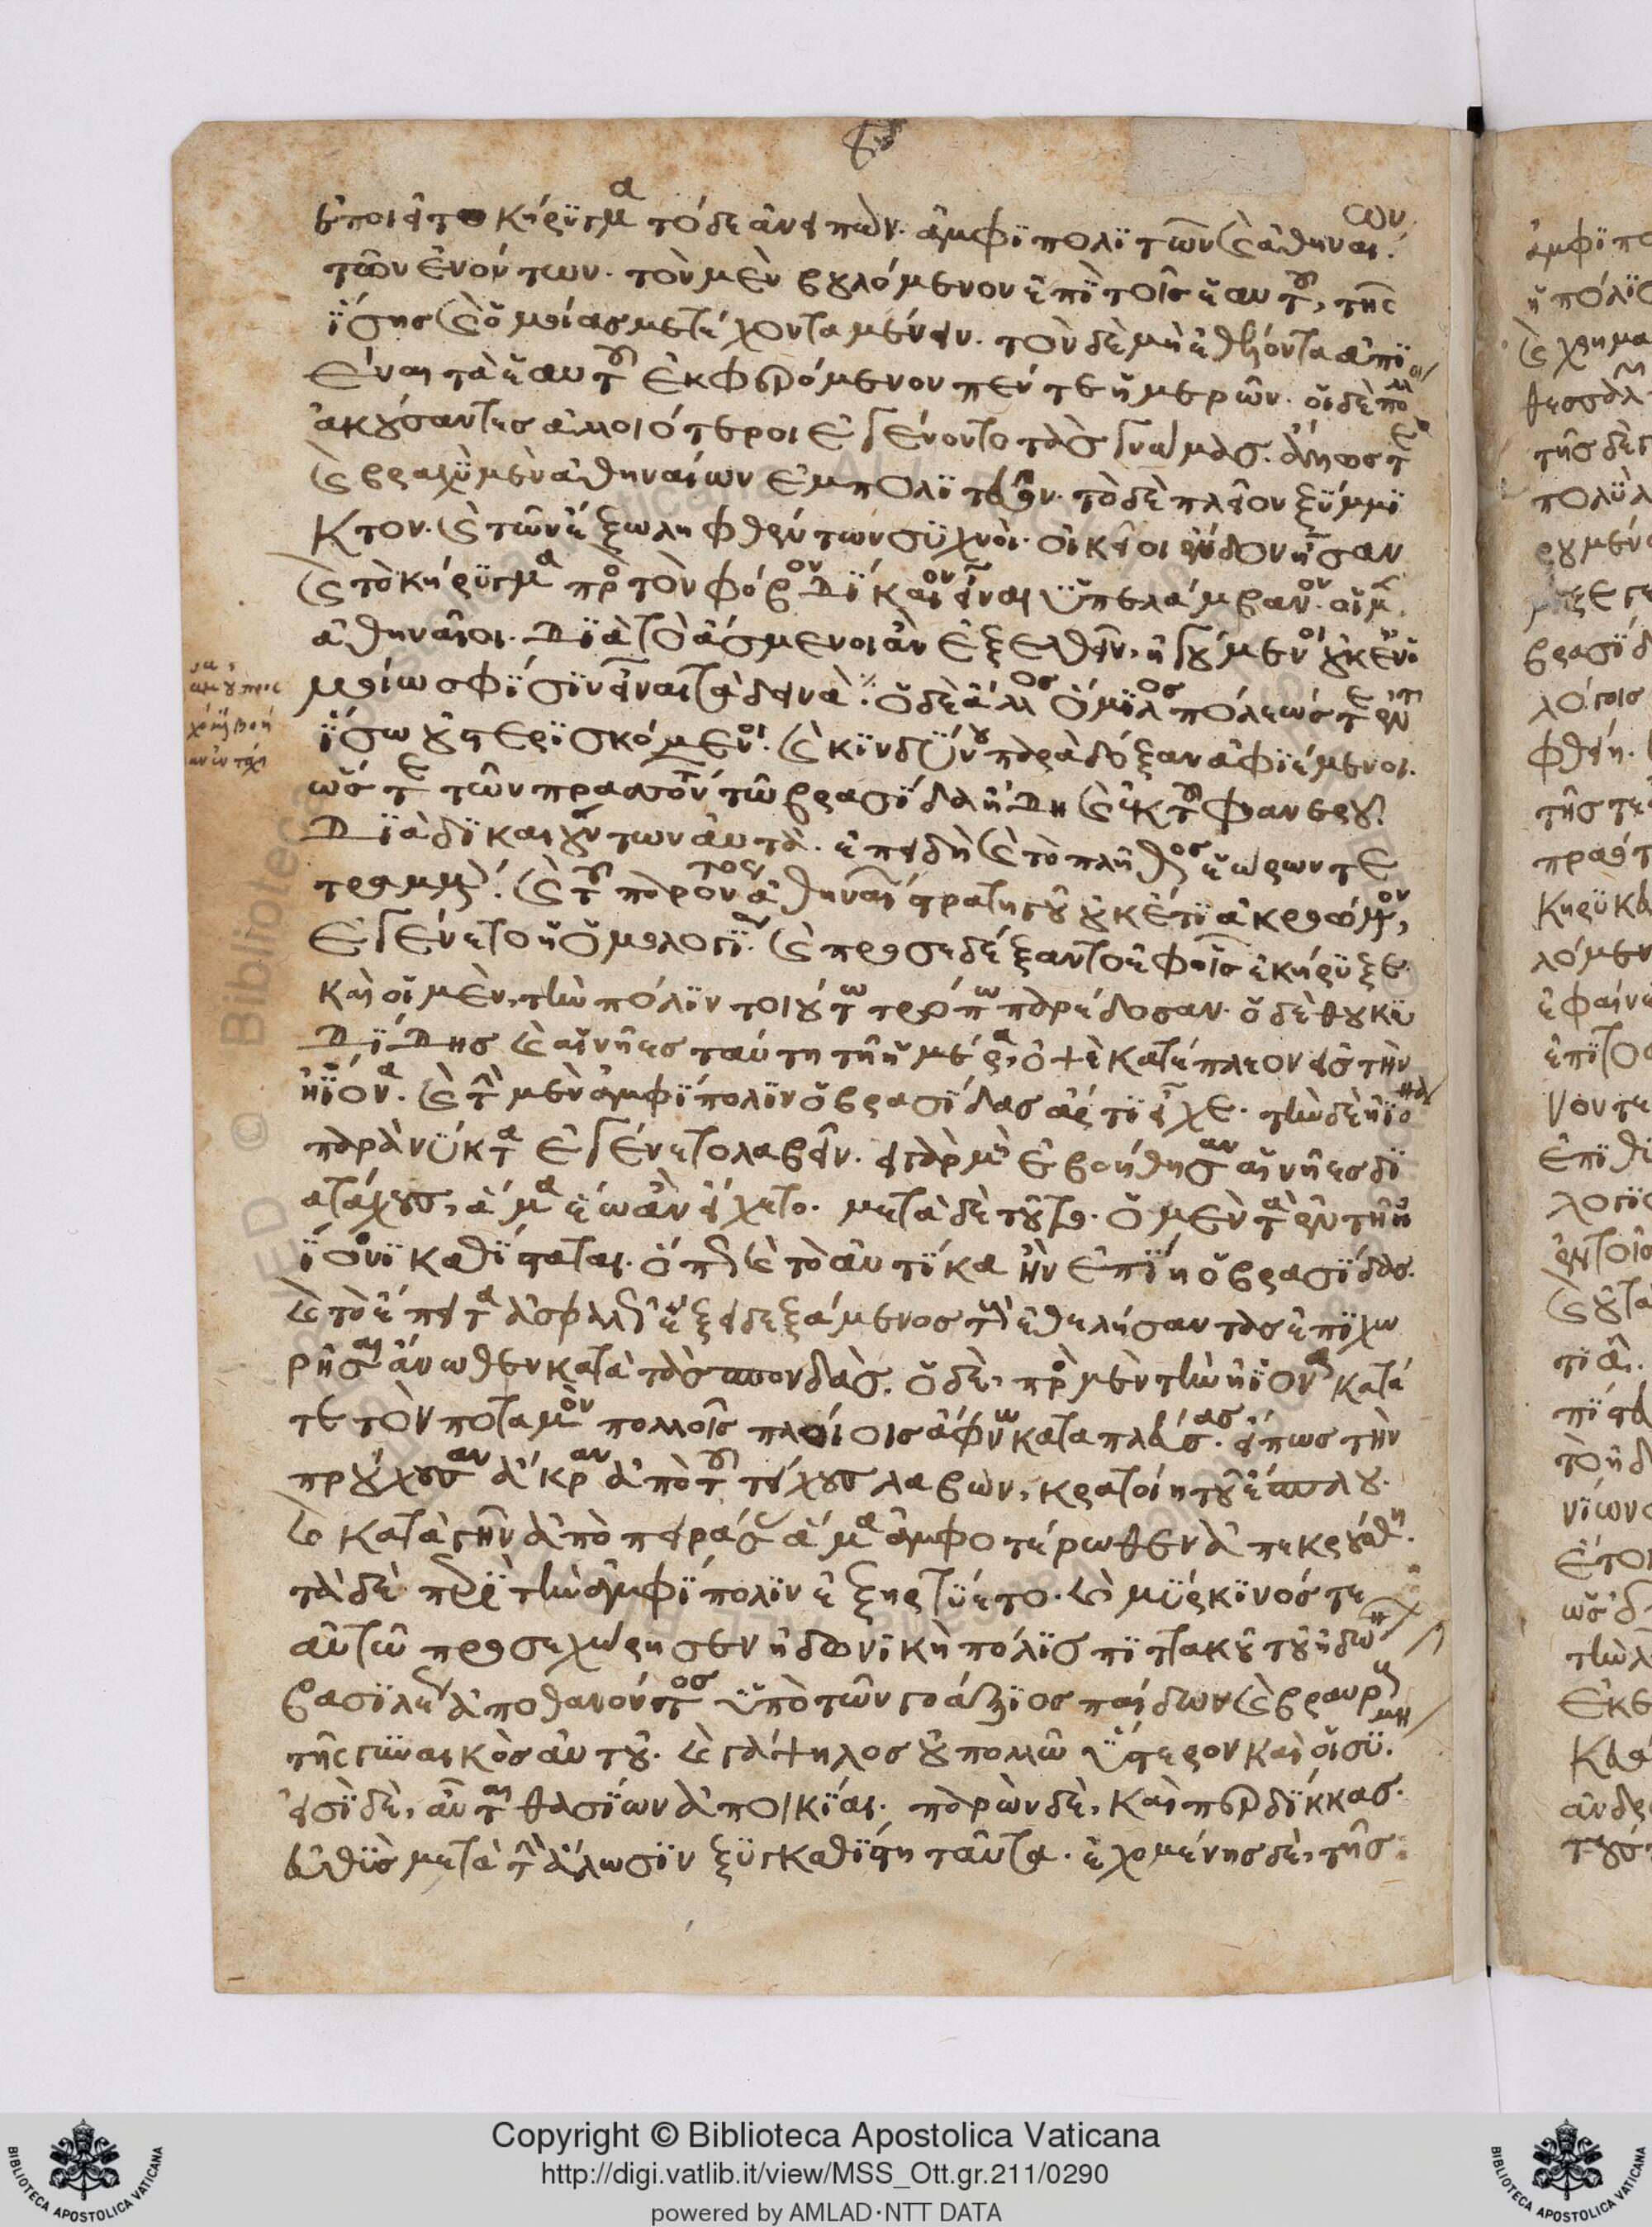 ἐποιεῖτο κήρυγμα τόδε ἀνειπών. ἀμφιπολιτῶν καὶ ἀθηναίων
τῶν ἐνόντων. τὸν μὲν βουλόμενον ἐπὶ τοῖς ἑαυτοῦ, τῆς
ἴσης καὶ ὁμοίας μετέχοντα μένειν. τὸν δὲ μὴ ἐθέλοντα ἀπι
έναι τὰ ἑαυτοῦ ἐκφερόμενον πέντε ἡμερῶν. οἱ δὲ πολλοὶ
ἀκούσαντες ἀλλοιότεροι ἐγένοντο τὰς γνώμας. ἄλλως τε
καὶ βραχὺ μὲν ἀθηναίων ἐμπολιτεῦον. τὸ δὲ πλεῖον ξύμμι
κτον. καὶ τῶν ἔξω ληφθέντων συχνοὶ οἰκεῖοι ἔνδον ἦσαν
καὶ τὸ κήρυγμα πρὸς τὸν φόβον δίκαιον εἶναι ὑπελάμβανον. οἱ μὲν
ἀθηναῖοι. διὰ τὸ ἄσμενοι ἂν ἐξελθεῖν, ἡγούμενοι οὐκ ἐν
ὁμοίω σφίσιν εἶναι τὰ δεινά. ὁ δὲ ἄλλος ὅμιλος πόλεώς τε ἐν τῷ
ἴσω οὐ στερισκόμενοι. καὶ κινδύνου παρὰ δόξαν ἀφιέμενοι.
ὥστε τῶν πρασσόντων τῶ βρασίδα ἤδη καὶ ἐκ τοῦ φανεροῦ
διαδικαιούντων αὐτά. ἐπειδὴ καὶ τὸ πλῆθος ἑώρων τε
τραμμένον. καὶ τοῦ παρόντος ἀθηναίων στρατηγοῦ οὐκέτι ἀκροώμενον,
ἐγένετο ἡ ὁμολογία. καὶ προσεδέξαντο ἐφ' οἷς ἐκήρυξε.
καὶ οἱ μὲν, τὴν πόλιν τοιούτω τρόπω παρέδοσαν. ὁ δὲ θουκυ
δίδης καὶ αἱ νῆες ταύτη τῆ ἡμέρα, ὀψὲ κατέπλεον εἰς τὴν
ἠϊόνα. καὶ τὴν μὲν ἀμφίπολιν ὁ βρασίδας ἄρτι εἶχε. τὴν δὲ ἠϊό
παρὰ νύκτα ἐγένετο λαβεῖν. εἰ γὰρ μὴ ἐβοήθησαν αἱ νῆες δι
ὰ τάχους, ἅμα ἕω ἂν εἴχετο. μετὰ δὲ τοῦτο. ὁ μὲν τὰ ἐν τῆ ἠ
ϊόνι καθίσταται. ὅπως καὶ τὸ αὐτίκα ἢν ἐπίη ὁ βρασίδας.
καὶ τὸ ἔπειτα ἀσφαλῶς ἕξει δεξάμενος τοὺς ἐθελήσαντας ἐπιχω
ρῆσαι ἄνωθεν κατὰ τὰς σπονδάς. ὁ δὲ, πρὸς μὲν τὴν ἠϊόνα κατά
τε τὸν ποταμὸν πολλοῖς πλοίοις ἄφνω καταπλεύσας. εἴπως τὴν
προύχουσαν ἄκραν ἀπὸ τοῦ τείχους λαβὼν, κρατοίη τοῦ ἔσπλου.
καὶ κατὰ γῆν ἀποπειράσας ἅμα ἀμφοτέρωθεν ἀπεκρούσθη.
τὰ δὲ περὶ τὴν ἀμφίπολιν ἐξηρτύετο. καὶ μύρκινός τε
αὐτῶ προσεχώρησεν ἠδωνικὴ πόλις πιττακοῦ τοῦ ἠδων
βασιλέως ἀποθανόντος ὑπὸ τῶν γοάξιος παίδων καὶ βραυροῦς
τῆς γυναικὸς αὐτοῦ. καὶ γάψηλος οὐ πολλῶ ὕστερον καὶ οἰσύ
εἰσὶ δὲ, αὗται θασίων ἀποικίαι. παρὼν δὲ, καὶ περδίκκας.
εὐθὺς μετὰ τὴν ἅλωσιν ξυγκαθίστη ταῦτα. ἐχομένης δὲ, τῆς
Copyright © Biblioteca Apostolica Vaticana
http://digi.vatlib.it/view/MSS_Ott.gr.211/0290
powered by AMLAD·NTT DATA